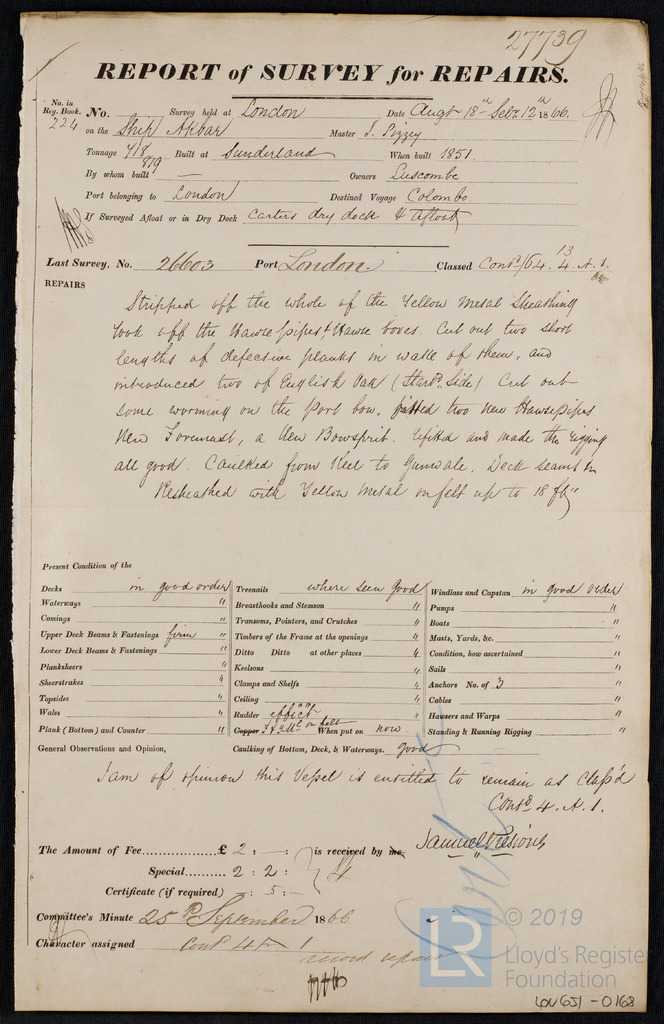 27739
REPORT of SURVEY for REPAIRS.
No. in Reg. Book. 224 No. Survey held at London Date Augt 18th Sebr 12th 1866.
on the Ship Akbar Master J. Pizzey
Tonnage 418/819 Built at Sunderland When built 1851.
By whom built — Owners Luscombe
Port belonging to London Destined Voyage Colombo
If Surveyed Afloat or in Dry Dock Carters dry dock & Afloat
Last Survey, No. 26603 Port London Classed Contd /64. 13 4. A. 1.
REPAIRS
Stripped off the whole of the Yellow Metal Sheathing
took off the Hawse pipes & Hawse boxes. Cut out two short
lengths of defective planks in wake of them, and
introduced two of English Oak (Starbd. Side) Cut out
some worming on the Port bow, fitted two new Hawsepipes
New Foremast, a New Bowsprit. Refitted and made the rigging
all good. Caulked from Keel to Gunwale, Deck seams
Resheathed with Yellow Metal on felt up to 18 ft
Present Condition of the
Decks in good order Treenails where seen Good Windlass and Capstan in good order
Waterways " Breasthooks and Stemson " Pumps "
Comings " Transoms, Pointers, and Crutches " Boats "
Upper Deck Beams & Fastenings firm " Timbers of the Frame at the openings " Masts, Yards, &c. "
Lower Deck Beams & Fastenings " Ditto Ditto at other places " Condition, how ascertained "
Planksheers " Keelsons " Sails "
Sheerstrakes " Clamps and Shelfs " Anchors No. of 3 "
Topsides " Ceiling " Cables "
Wales " Rudder effict Hawsers and Warps "
Plank (Bottom) and Counter " Copper on felt When put on now. Standing & Running Rigging "
General Observations and Opinion, Caulking of Bottom, Deck, & Waterways. Good
I am of opinion this Vessel is entitled to remain as Class'd
Contd 4. A. 1.
The Amount of Fee £ 2 : – : is received by me,
Special 2 : 2 :
Certificate (if required) : 5 : –
Committee's Minute 25th September 1866
Character assigned Contd 4 A 1
record repairs
LR © 2019
Lloyd's Register
Foundation
LON651-0168